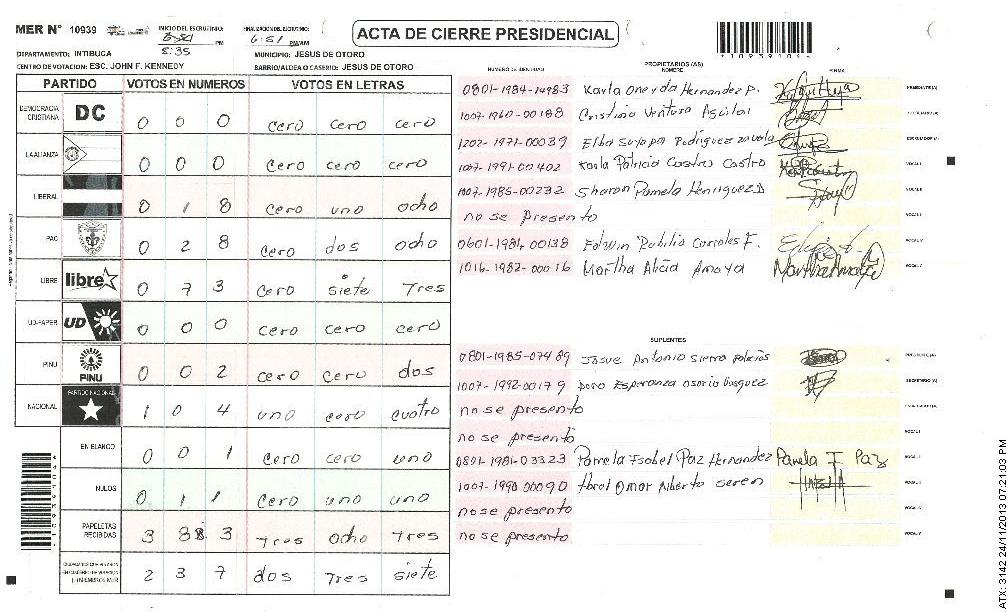 MER N° 10939
INICIO DEL ESCRUTINIO:
PM
5:35
FINALIZACIÓN DEL ESCRUTINIO:
6:51 PM/AM
ACTA DE CIERRE PRESIDENCIAL
*10939109*
DEPARTAMENTO: INTIBUCA
MUNICIPIO: JESUS DE OTORO
CENTRO DE VOTACION: ESC. JOHN F. KENNEDY
BARRIO/ALDEA O CASERIO: JESUS DE OTORO
PARTIDO VOTOS EN NUMEROS VOTOS EN LETRAS
DEMOCRACIA CRISTIANA DC 0 0 0 cero cero cero
LA ALIANZA 0 0 0 cero cero cero
LIBERAL 0 1 8 cero uno ocho
PAC 0 2 8 cero dos ocho
LIBRE libre 0 7 3 cero siete Tres
UD-FAPER UD 0 0 0 cero cero cero
PINU PINU 0 0 2 cero cero dos
NACIONAL PARTIDO NACIONAL 1 0 4 uno cero cuatro
EN BLANCO 0 0 1 cero cero uno
NULOS 0 1 1 cero uno uno
PAPELETAS RECIBIDAS 3 8 3 Tres ocho Tres
2 3 7 dos Tres siete
PROPIETARIOS (AS)
NUMERO DE IDENTIDAD NOMBRE FIRMA
0801-1984-14983 Karla Oneyda Hernandez P. PRESIDENTE (A)
1007-1960-00188 Cristina Ventura Aguilar SECRETARIO (A)
1202-1971-00039 Elba Suyapa Rodriguez Zavala ESCRUTADOR (A)
1007-1991-00402 Karla Patricia Castro Castro VOCAL I
1007-1985-00232 Sharon Pamela Henriquez D VOCAL II
no se presento
0601-1981-00138 Edwin Rubilio Corrales F. VOCAL IV
1016-1982-00016 Martha Alicia Amaya VOCAL V
SUPLENTES
0801-1985-07489 Josue Antonio Sierra PRESIDENTE (A)
1007-1992-00179 Dora Esperanza Osorio Vasquez SECRETARIO (A)
no se presento
no se presento
0801-1981-03323 Pamela Isabel Paz Hernandez Pamela I Paz
1007-1990-00090 Omar Alberto
no se presento
no se presento
ATX: 3142 24/11/2013 07:21:03 PM